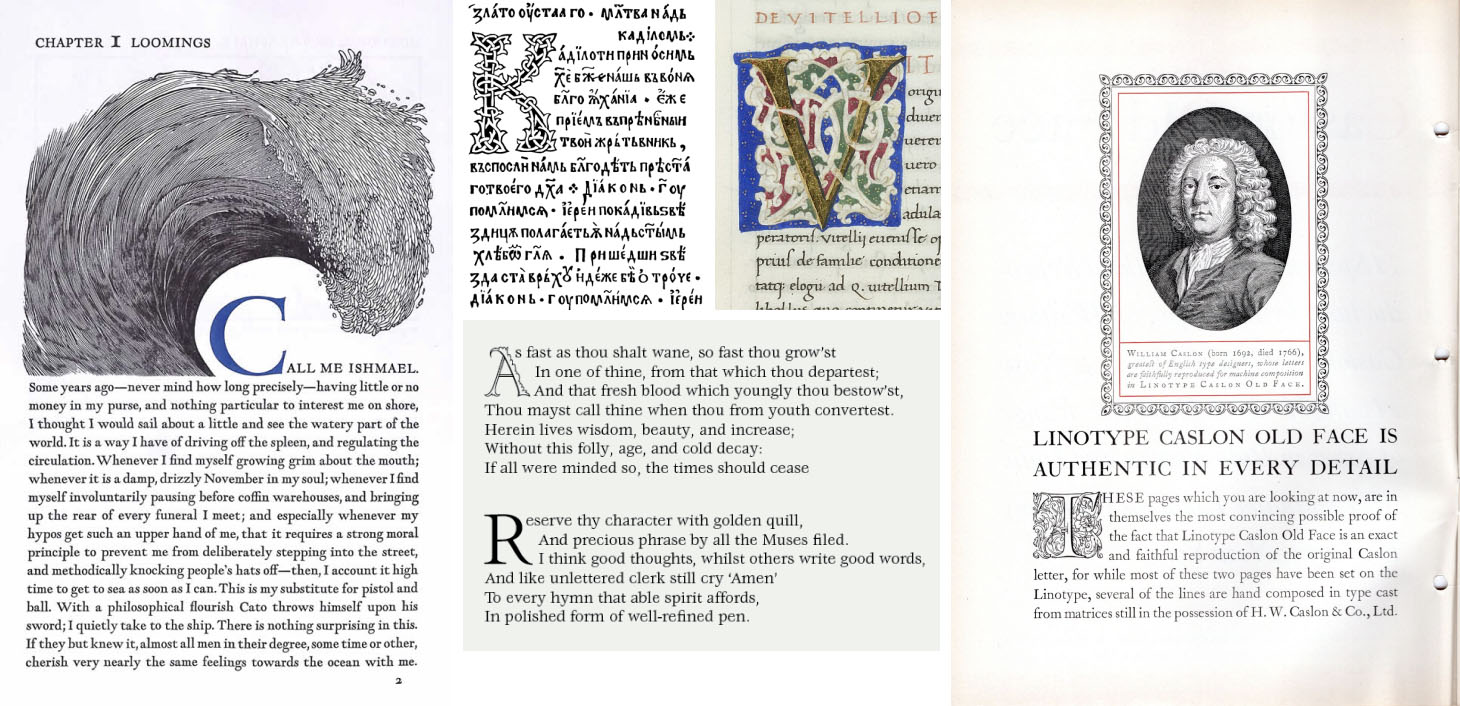 CHAPTER I LOOMINGS
CALL ME ISHMAEL.
Some years ago—never mind how long precisely—having little or no
money in my purse, and nothing particular to interest me on shore,
I thought I would sail about a little and see the watery part of the
world. It is a way I have of driving off the spleen, and regulating the
circulation. Whenever I find myself growing grim about the mouth;
whenever it is a damp, drizzly November in my soul; whenever I find
myself involuntarily pausing before coffin warehouses, and bringing
up the rear of every funeral I meet; and especially whenever my
hypos get such an upper hand of me, that it requires a strong moral
principle to prevent me from deliberately stepping into the street,
and methodically knocking people's hats off—then, I account it high
time to get to sea as soon as I can. This is my substitute for pistol and
ball. With a philosophical flourish Cato throws himself upon his
sword; I quietly take to the ship. There is nothing surprising in this.
If they but knew it, almost all men in their degree, some time or other,
cherish very nearly the same feelings towards the ocean with me.
2
DE VITELLIO
V IT
origi
diver
ueter
uero
etiam
adula
peratoris. Vitellij euenisse
prius de familie conditione
tatq: elogii ad Q. uitellium
As fast as thou shalt wane, so fast thou grow'st
In one of thine, from that which thou departest;
And that fresh blood which youngly thou bestow'st,
Thou mayst call thine when thou from youth convertest.
Herein lives wisdom, beauty, and increase;
Without this folly, age, and cold decay:
If all were minded so, the times should cease
Reserve thy character with golden quill,
And precious phrase by all the Muses filed.
I think good thoughts, whilst others write good words,
And like unlettered clerk still cry ‘Amen’
To every hymn that able spirit affords,
In polished form of well-refined pen.
WILLIAM CASLON (born 1692, died 1766),
greatest of English type designers, whose letters
are faithfully reproduced for machine composition
in LINOTYPE CASLON OLD FACE.
LINOTYPE CASLON OLD FACE IS
AUTHENTIC IN EVERY DETAIL
THESE pages which you are looking at now, are in
themselves the most convincing possible proof of
the fact that Linotype Caslon Old Face is an exact
and faithful reproduction of the original Caslon
letter, for while most of these two pages have been set on the
Linotype, several of the lines are hand composed in type cast
from matrices still in the possession of H. W. Caslon & Co., Ltd.